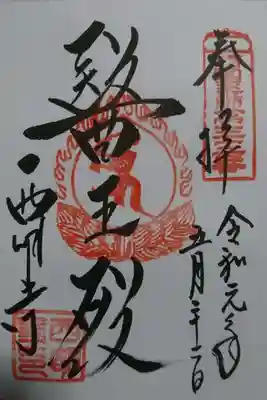 奉拝
令和元年
五月二十二日
醫王殿
西明寺